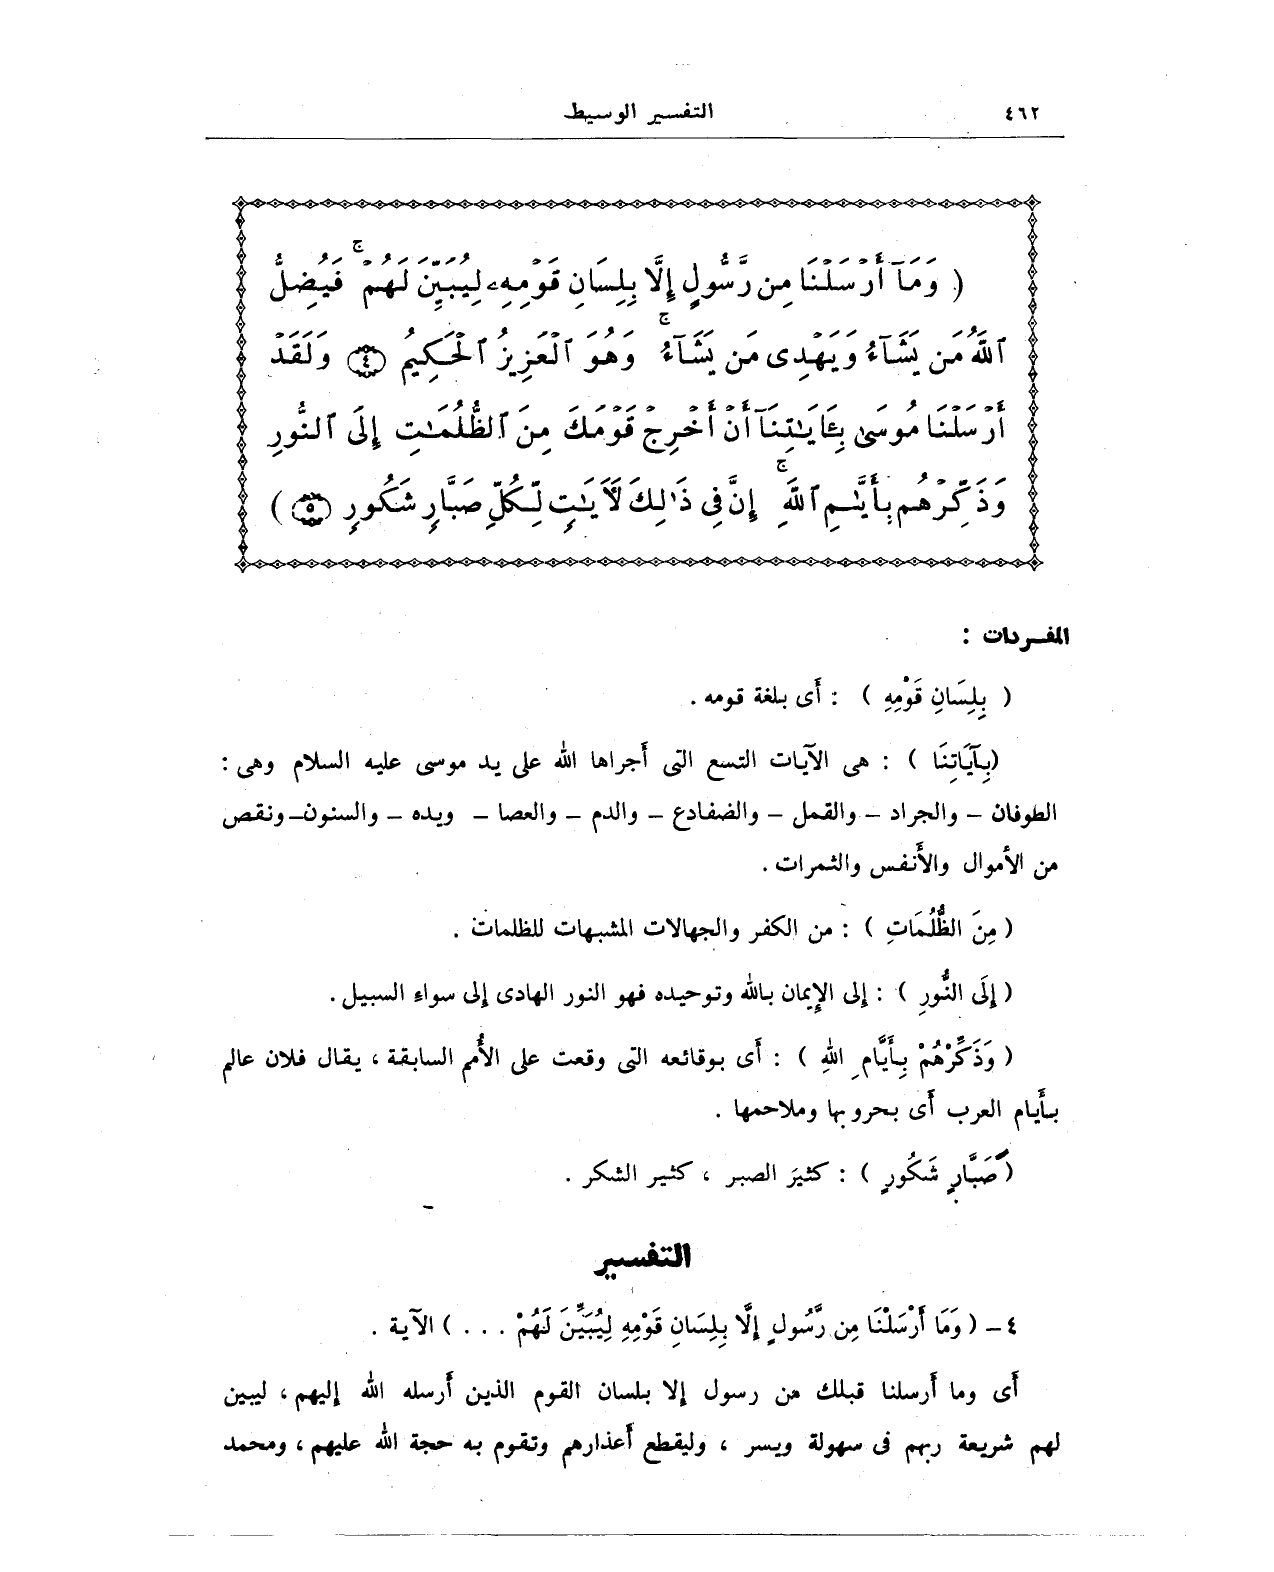 ٤٦٢
التفسير الوسيط
( وَمَآ أَرۡسَلۡنَا مِن رَّسُولٍ إِلَّا بِلِسَانِ قَوۡمِهِۦ لِيُبَيِّنَ لَهُمۡۖ فَيُضِلُّ
ٱللَّهُ مَن يَشَآءُ وَيَهۡدِى مَن يَشَآءُۚ وَهُوَ ٱلۡعَزِيزُ ٱلۡحَكِيمُ ٤ وَلَقَدۡ
أَرۡسَلۡنَا مُوسَىٰ بِـَٔايَـٰتِنَآ أَنۡ أَخۡرِجۡ قَوۡمَكَ مِنَ ٱلظُّلُمَـٰتِ إِلَى ٱلنُّورِ
وَذَكِّرۡهُم بِأَيَّـٰمِ ٱللَّهِۚ إِنَّ فِى ذَٰلِكَ لَـَٔايَـٰتٍ لِّكُلِّ صَبَّارٍ شَكُورٍ ٥ )
المفـردات :
( بِلِسَانِ قَوْمِهِ ) : أَى بلغة قومه .
(بِآيَاتِنَا ) : هى الآيات التسع التى أَجراها الله على يد موسى عليه السلام وهى :
الطوفان – والجراد – والقمل – والضفادع – والدم – والعصا – ويده – والسنون– ونقص
من الأموال والأَنفس والثمرات .
( مِنَ الظُّلُمَاتِ ) : من الكفر والجهالات المشبهات للظلمات .
( إِلَى النُّورِ ) : إِلى الإِيمان بالله وتوحيده فهو النور الهادى إِلى سواء السبيل .
( وَذَكِّرْهُمْ بِأَيَّامِ اللهِ ) : أَى بوقائعه التى وقعت على الأُمم السابقة ، يقال فلان عالم
بأَيام العرب أَى بحروبها وملاحمها .
( صَبَّارٍ شَكُورٍ ) : كثيرَ الصبر ، كثير الشكر .
التفسير
٤ – ( وَمَا أَرْسَلْنَا مِن رَّسُولٍ إِلَّا بِلِسَانِ قَوْمِهِ لِيُبَيِّنَ لَهُمْ . . . ) الآية .
أَى وما أَرسلنا قبلك من رسول إلا بلسان القوم الذين أَرسله الله إليهم ، ليبين
لهم شريعة ربهم فى سهولة ويسر ، وليقطع أَعذارهم وتقوم به حجة الله عليهم ، ومحمد